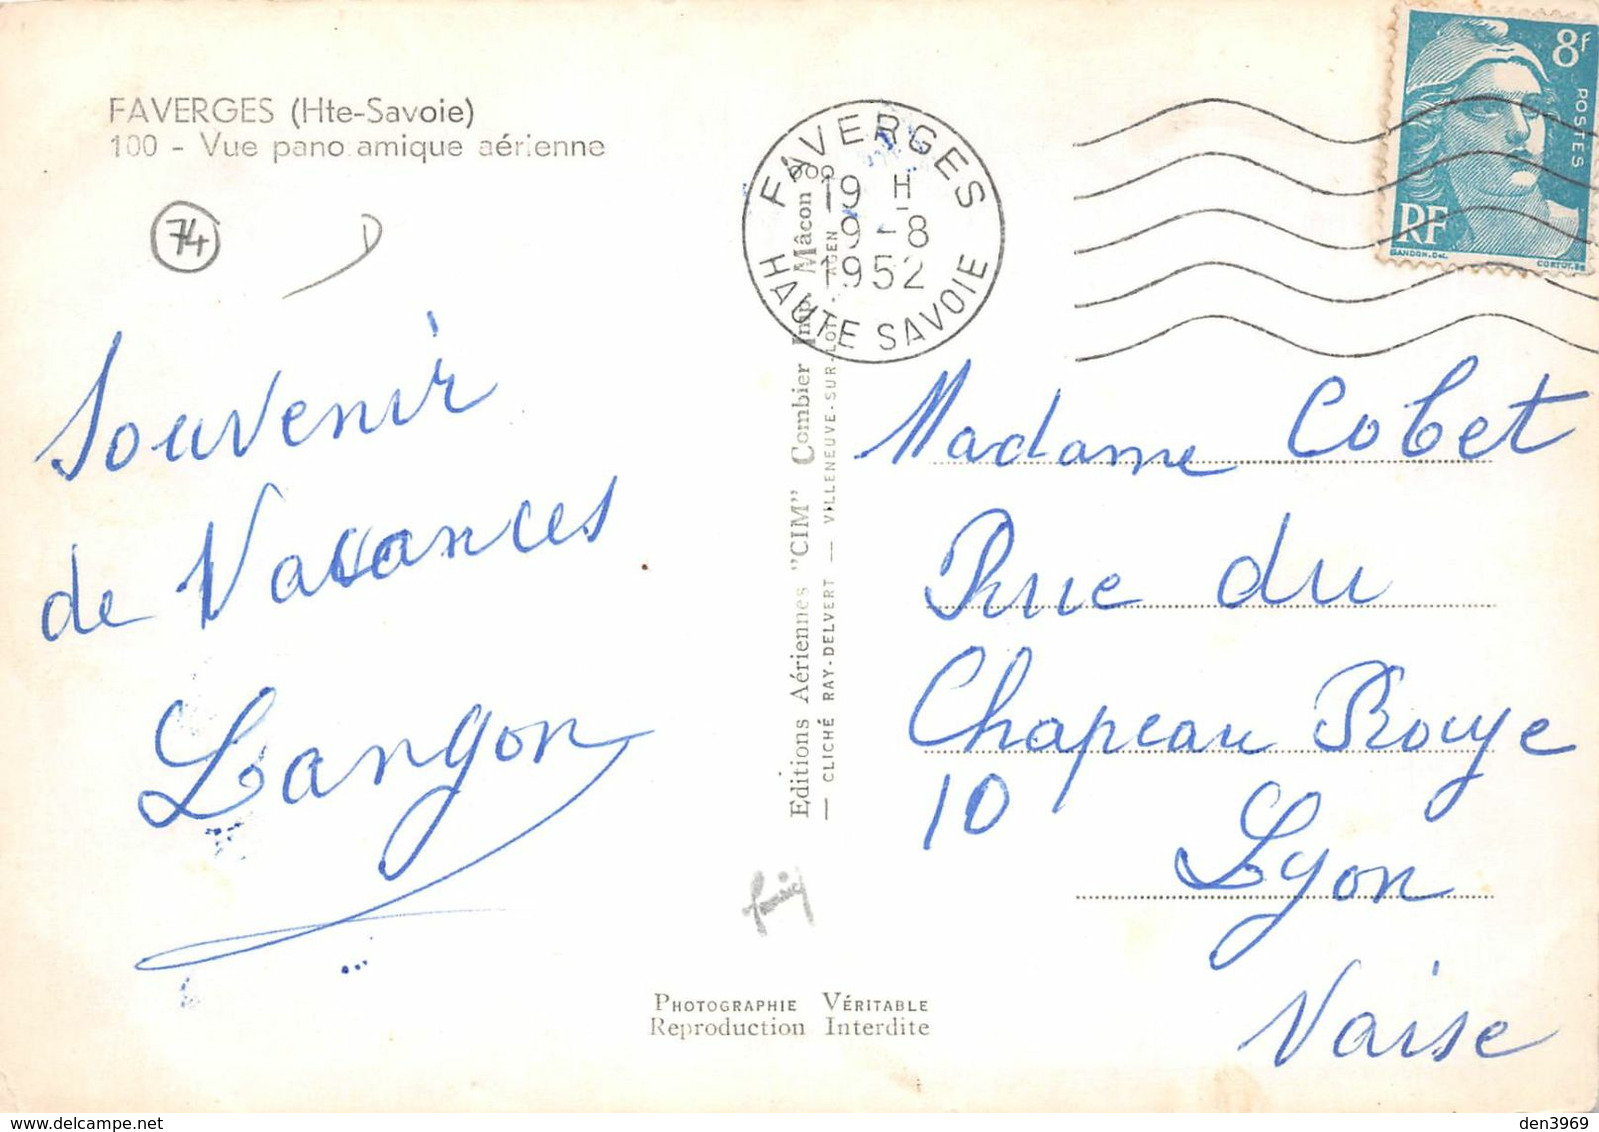 FAVERGES (Hte-Savoie)
100 - Vue pano amique aérienne
74
D
Souvenir
de Vacances
Langon
FAVERGES
19 H
9-8
1952
HAUTE SAVOIE
8f
POSTES
RF
GANDON.Del.
CORTOT.Sc
Editions Aériennes "CIM" Combier Imp. Mâcon
— CLICHÉ RAY-DELVERT — VILLENEUVE-SUR-LOT AGEN
Madame Cobet
Rue du
Chapeau Rouge
10
Lyon
Vaise
PHOTOGRAPHIE VÉRITABLE
Reproduction Interdite
den3969